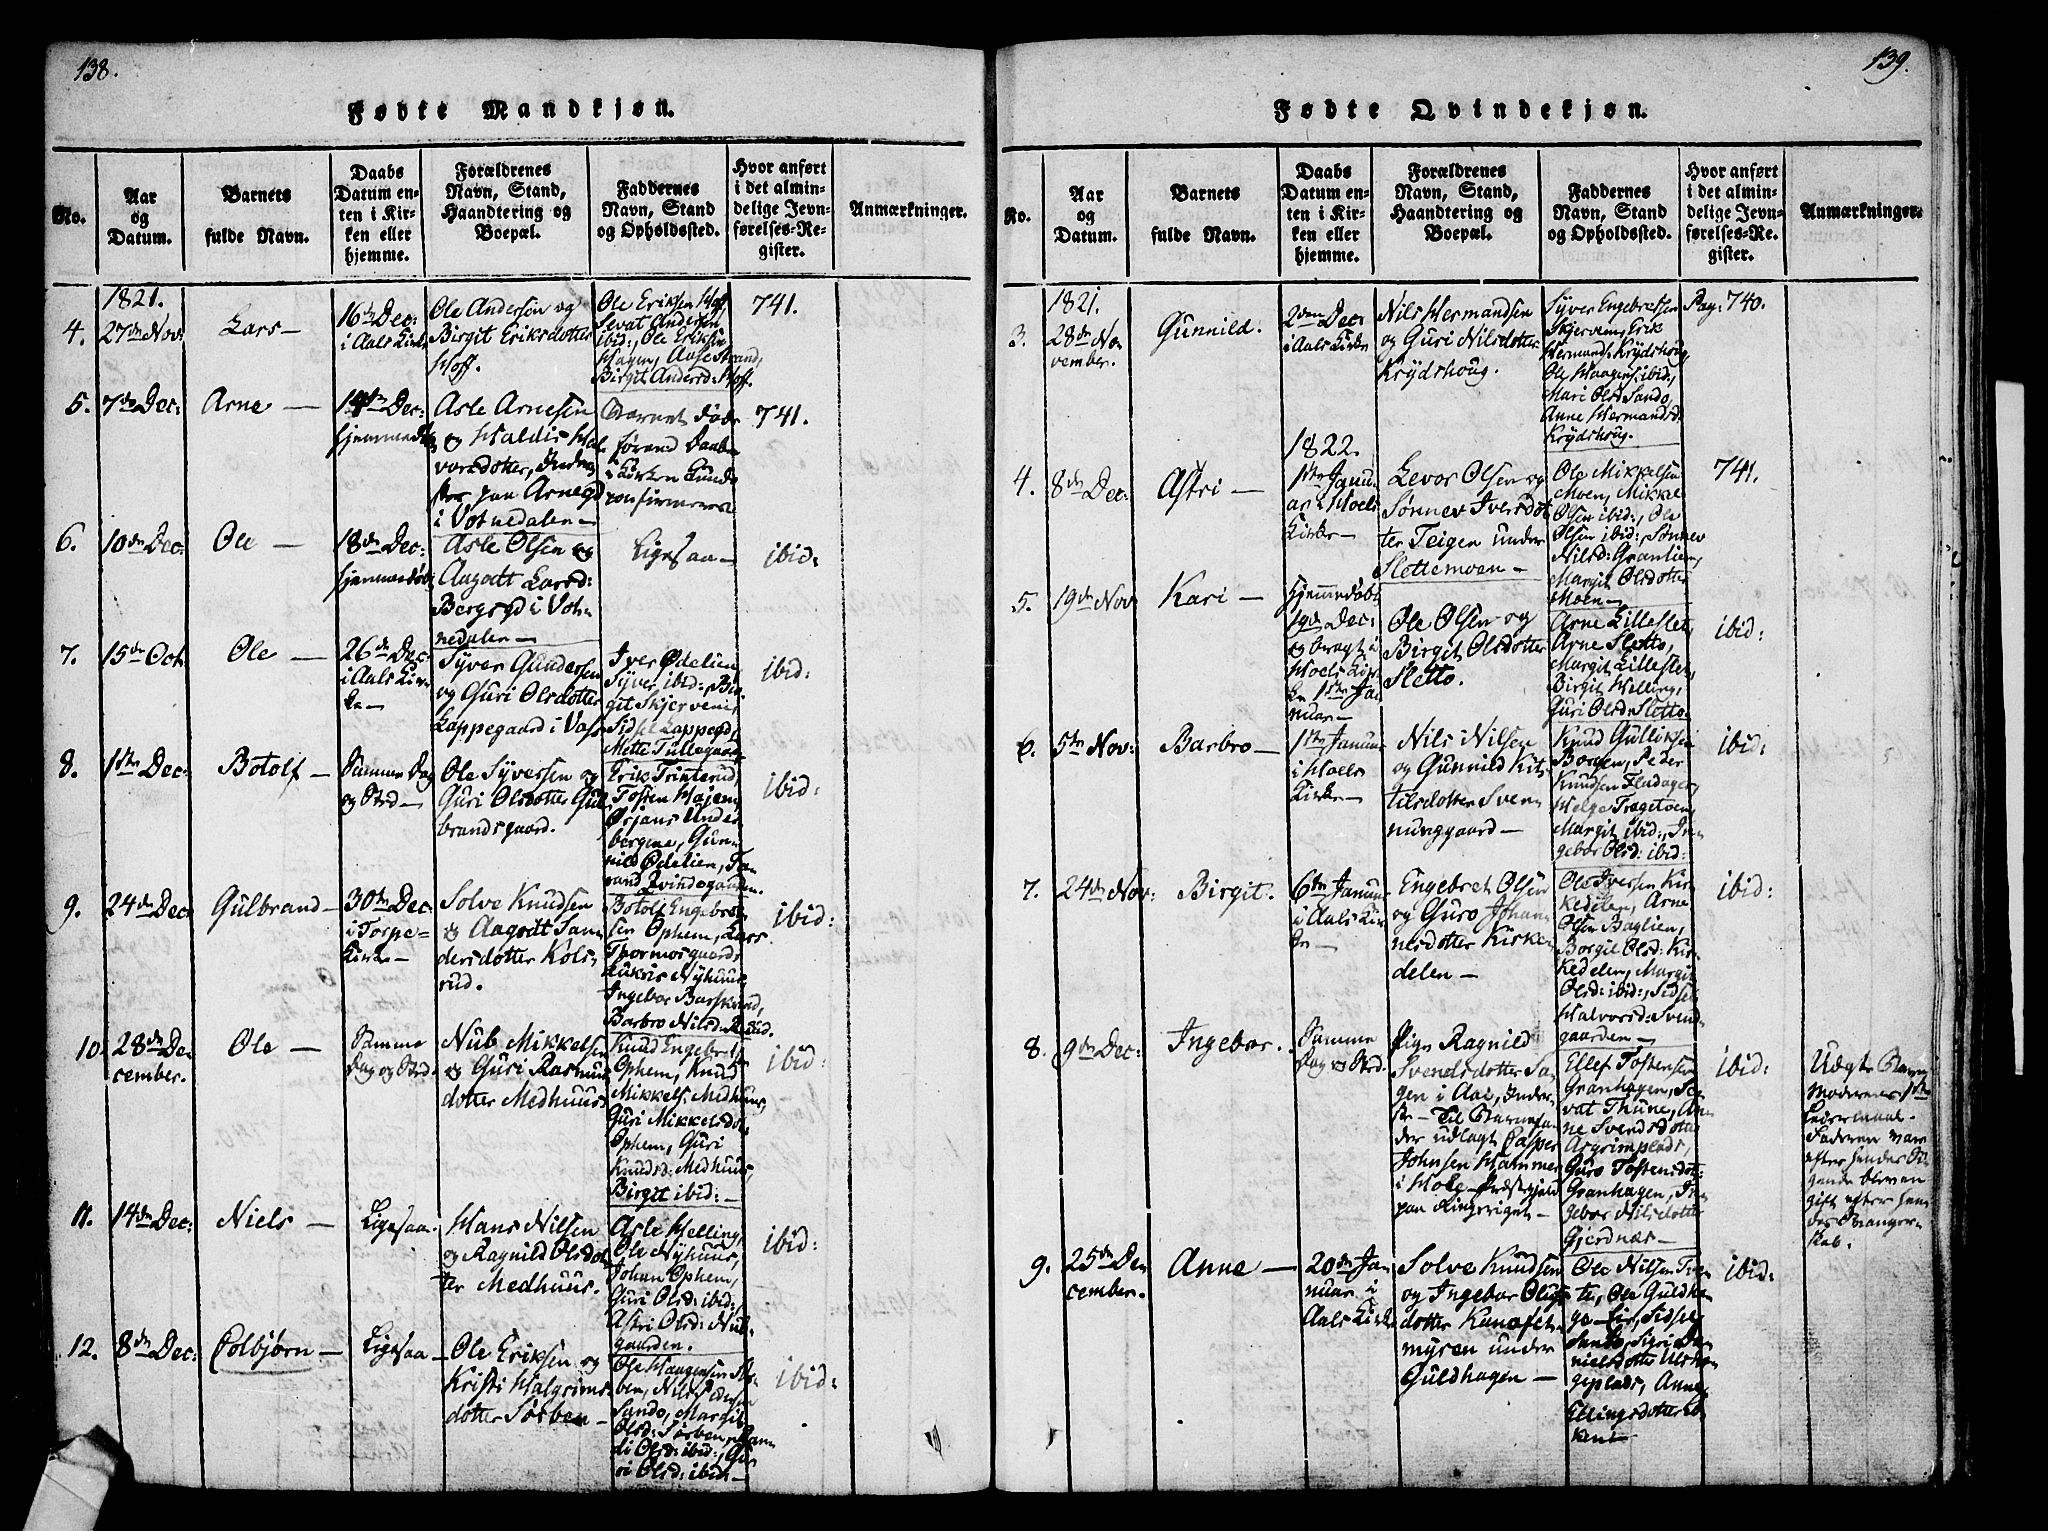 138.
Fødte Mandkjøn.
No.
Aar
og
Datum.
Barnets
fulde Navn.
Daabs
Datum en-
ten i Kir-
ken eller
hjemme.
Forældrenes
Navn, Stand,
Haandtering og
Boepæl.
Faddernes
Navn, Stand
og Opholdssted.
Hvor anført
i det almin-
delige Jevn-
førelses-Re-
gister.
Anmærkninger.
1821.
4.
27de Nov:
Lars —
16de Dec:
i Aals Kirke
Ole Andersen og
Birgit Eriksdotter
Hoff.
Ole Eriksen Hoff,
Sevat Andersen
ibid:, Ole Eriksen
Hagen, Aase Strand,
Birgit Andersd: Hoff.
741.
5.
7de Dec:
Arne —
14de Dec:
hjemmedøbt
Asle Arnesen
og Haldis Hal-
vorsdotter, Inder-
ster paa Arnegd
i Votnedalen —
Barnet døde
førend Daaben
i Kirken kunde
confirmeres
741.
6.
10de Dec:
Ole —
18de Dec:
hjemmedøbt
Asle Olsen og
Aagodt Larsd:
Bergsgd i Vot-
nedalen —
Ligesaa —
ibid:
7.
15de Oct.
Ole —
26de Dec:
i Aals Kir-
ke —
Syver Gundersen
og Guri Olsdotter
Lappegaard i Vats
Iver Ødelien,
Syver ibid:, Bir-
git Skjerveim,
Sidsel Lappegd,
Mette Tullegaard
ibid:
8.
1ste Dec:
Botolf —
Samme Dag
og Sted —
Ole Syversen og
Guri Olsdotter Gul-
brandsgaard.
Erik Trinterud,
Tosten Hajem,
Ørjans Under-
bergene, Gun-
nild Ødelien,
Qvindegaarden.
ibid:
9.
24de Dec:
Gulbrand —
30te Dec:
i Torpe-
Kirke —
Solve Knudsen
og Aagodt San-
dersdotter Kols-
rud.
Botolf Engebret-
sen Ophem, Lars
Thormosgaard,
Lukris Nyhuus,
Ingebor Barskrind,
Barbro Nilsd: Ruud.
ibid:
10.
28de De-
cember.
Ole —
Samme
Dag og Sted.
Nub Mikkelsen
og Guri Rasmus-
dotter Medhuus
Knud Engebrets:
Ophem, Knud
Mikkels: Medhuus,
Guri Mikkelsdot:
Ophem, Guri
Knudsd: Medhuus,
Birgit ibid: —
ibid:
11.
14de Dec:
Niels —
Ligesaa —
Hans Nilsen
og Ragnild Olsdot-
ter Medhuus.
Asle Helling,
Ole Nyhuus,
Johan Ophem,
Guri Olsd: ibid:
Astri Olsd: Nub-
gaarden.
ibid:
12.
8de Dec:
Colbjørn —
Ligesaa —
Ole Eriksen og
Kristi Halgrims-
dotter Sørben —
Ole Haagensen Sør-
ben, Nils Pedersen
Sando, Margit
Olsd: Sørben, Ran-
di Olsd: ibid:, Gu-
ri Olsd: ibid: —
ibid:
139.
Fødte Qvindekjøn.
No.
Aar
og
Datum.
Barnets
fulde Navn.
Daabs
Datum en-
ten i Kir-
ken eller
hjemme.
Forældrenes
Navn, Stand,
Haandtering og
Boepæl.
Faddernes
Navn, Stand
og Opholdssted.
Hvor anført
i det almin-
delige Jevn-
førelses-Re-
gister.
Anmærkninger.
1821.
3.
28de No-
vember.
Gunnild.
2den Dec:
i Aals Kirke
Nils Hermandsen
og Guri Nilsdotter
Krydshoug.
Syver Engebretsen
Skjerveim, Erik
Hermands: Krydshoug,
Ole Haagens: ibid:,
Mari Olsd: Sando,
Anne Hermandsd:
Krydshoug.
Pag: 740.
4.
8de Dec:
Astri —
1822.
1ste Janu-
ar i Hoels
Kirke —
Levor Olsen og
Sønnev Iversdot-
ter Teigen under
Slettemoen —
Ole Mikkelsen
Moen, Mikkel
Olsen ibid:, Ole
Olsen ibid:, Sønnev
Nilsd: Granlien,
Margit Olsdotter
Moen —
741.
5.
19de Nov
Kari —
hjemmedøbt
19de Dec:
og bragt i
Hoels Kir-
ke 1ste Ja-
nuar —
Ole Olsen og
Birgit Olsdotter
Sletto.
Arne Lilleslet,
Arne Sletto,
Margit Lilleslet,
Birgit Helling,
Guri Olsd: Sletto.
ibid:
6.
5te Nov:
Barbro —
1ste Januar
i Hoels
Kirke —
Nils Nilsen
og Gunnild Kit-
tilsdotter Sven-
nunggaard —
Knud Gulliksen
Borgen, Peder
Knudsen Fladager,
Helge Trøgetoen,
Margit ibid:, In-
gebor Olsd: ibid:
ibid:
7.
24de Nov:
Birgit.
6te Januar
i Aals Kir-
ke —
Engebret Olsen
og Guro Johan-
nesdotter Kirke-
delen —
Ole Iversen Kir-
kedelen, Arne
Olsen Baglien,
Borgil Olsd: Kir-
kedelen, Margit
Olsd: ibid:, Sidsel
Halvorsd: Svend-
gaarden —
ibid:
8.
9de Dec:
Ingebor.
Samme
Dag og Sted.
Pige Ragnild
Svendsdotter Sa-
gen i Aal, Inder-
ste — Til Barnefa-
der udlagt Casper
Johnsen Hammer
i Hole Præstegjeld
paa Ringeriget —
Ellef Tostensen
Granhagen, Se-
vat Thune, An-
ne Svendsdotter
Asgrimplads,
Guro Tostensdot:
Granhagen, In-
gebor Nilsdotter
Gjerdnæs —
ibid:
Uægte Barn,
Moderens 1ste
Leiermaal.
Faderen var
efter hendes Si-
gende bleven
gift efter hen-
des Svanger-
skab.
9.
25de De-
cember.
Anne —
20de Ja-
nuar i
Aals Kirke
Solve Knudsen
og Ingebor Olufs-
dotter Kanafet-
myren under
Guldhagen —
Ole Nilsen Tve-
to, Ole Guldha-
gelir, Sidsel
Sando, Sigri Da-
nielsdotter Ulsha-
geplads, Anne
Ellingsdotter
ibid: